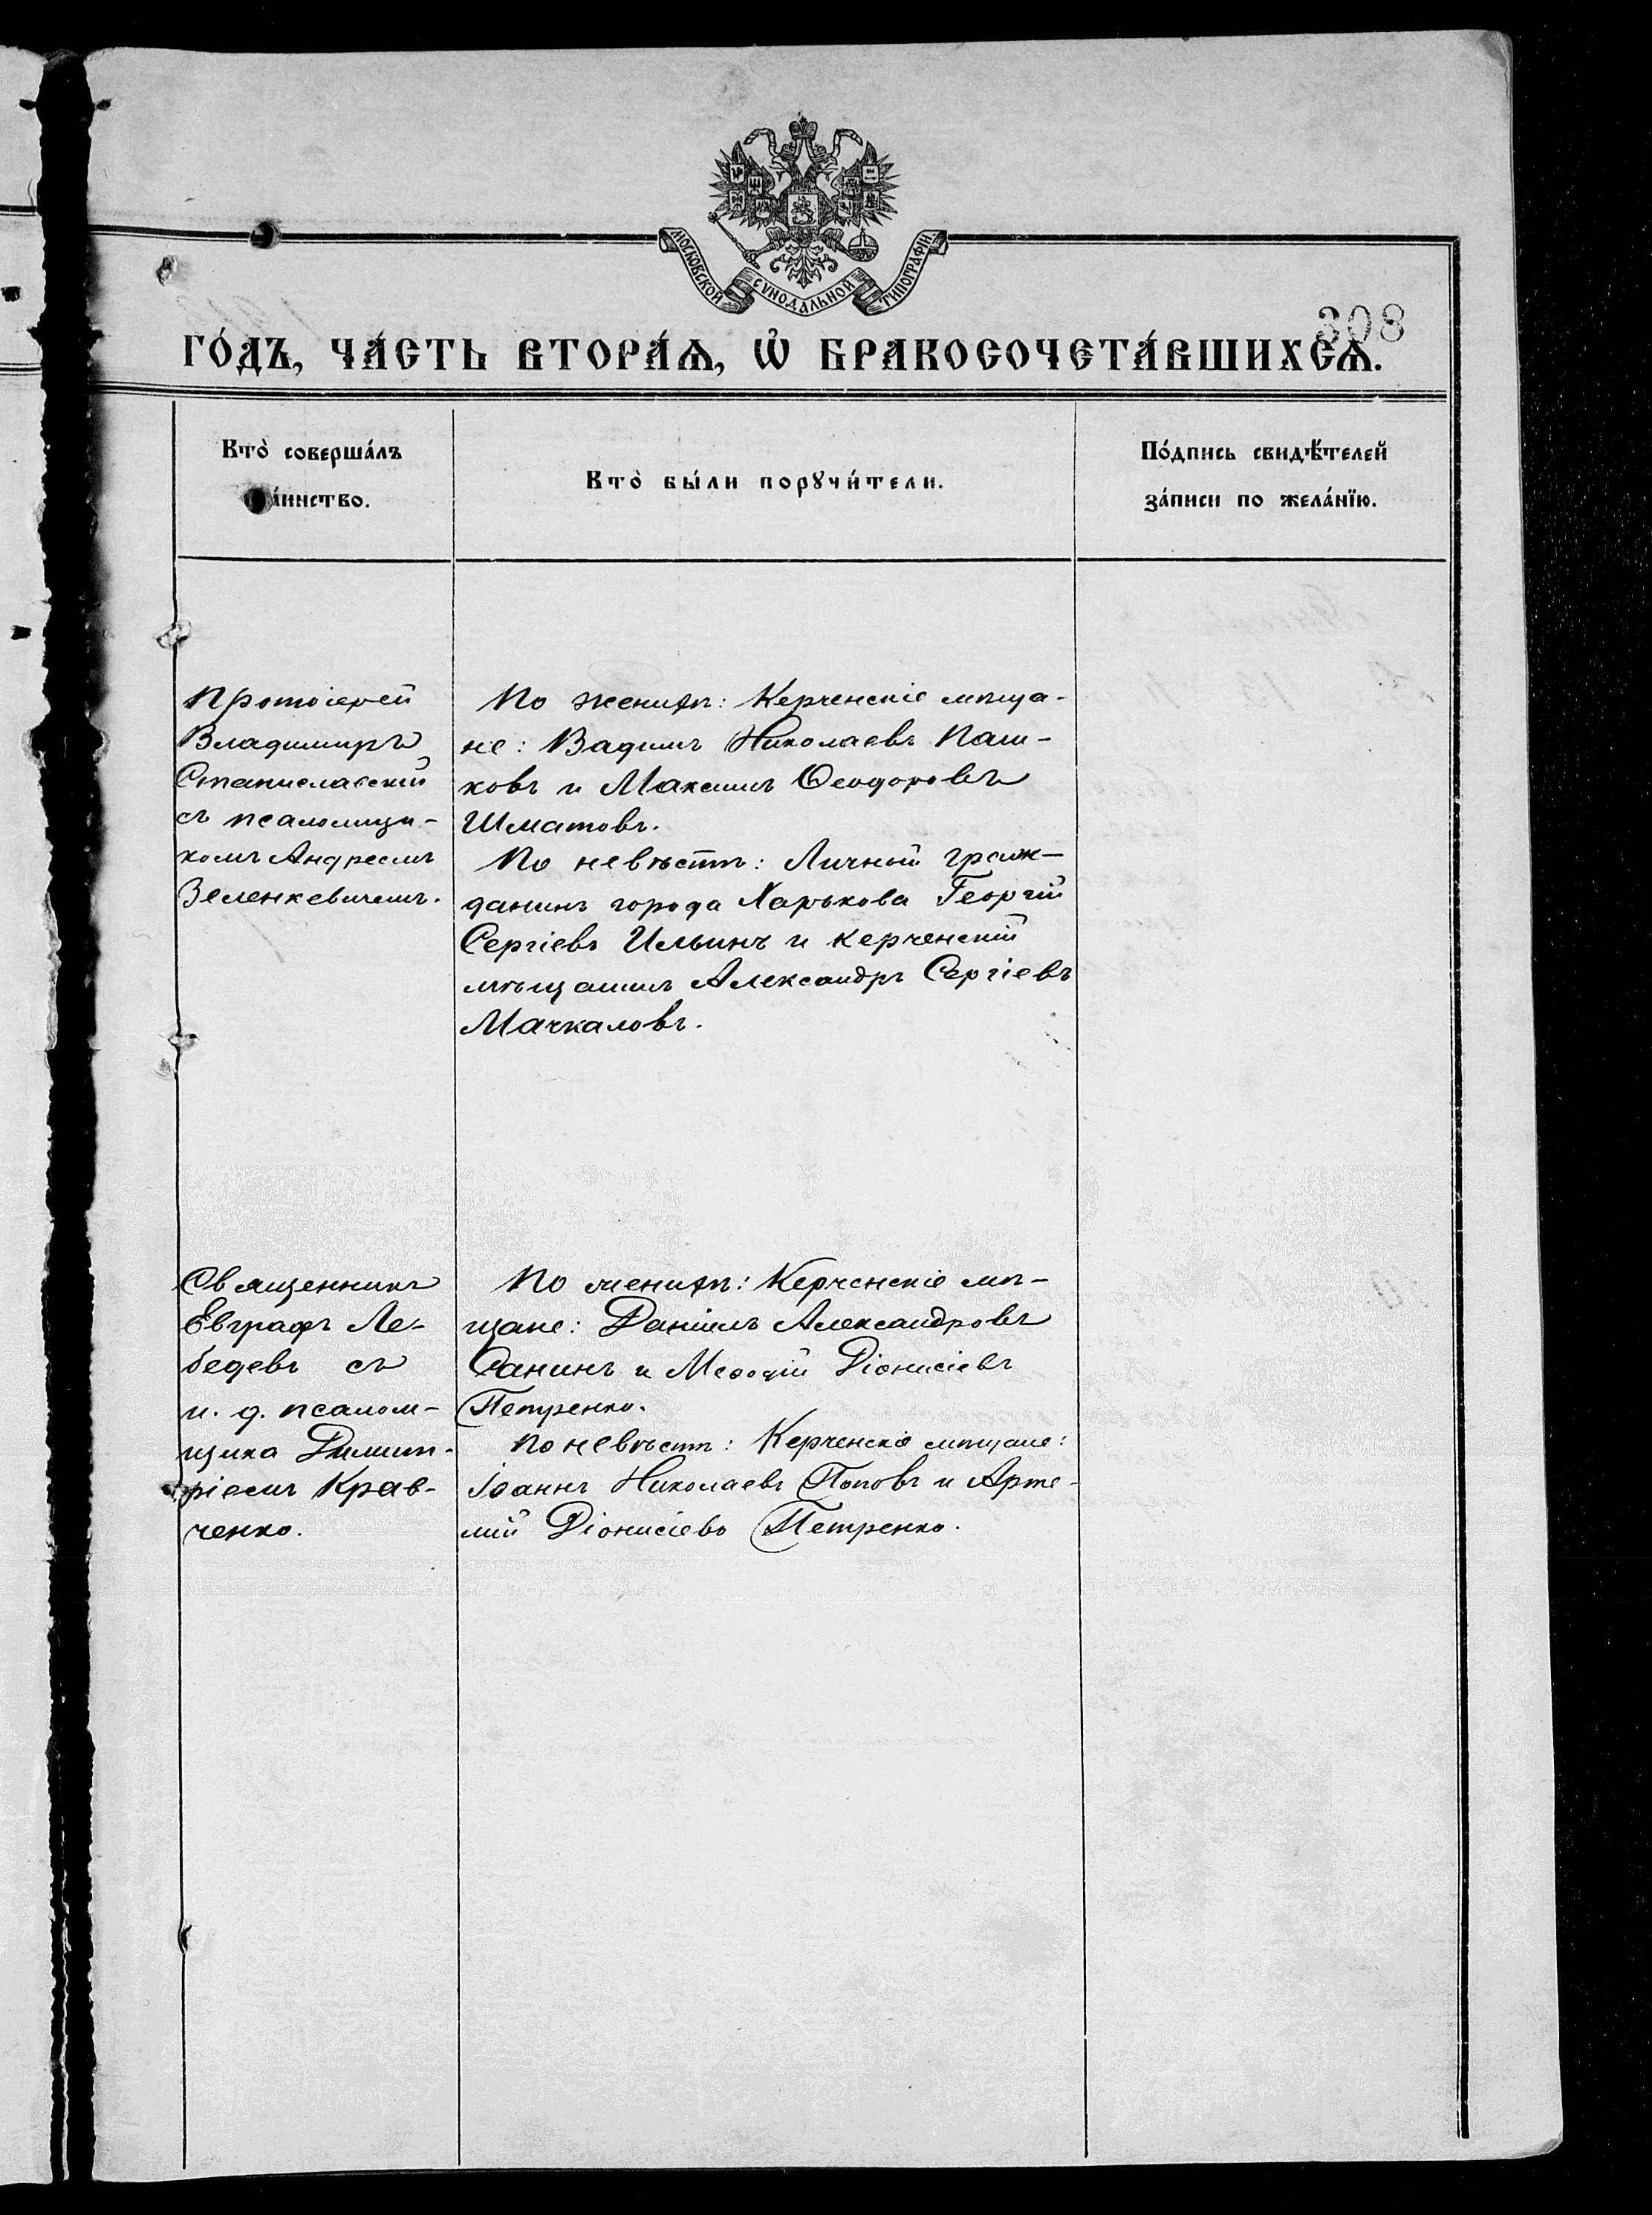 МОСКОВСКОЙ СѴНОДАЛЬНОЙ ТИПОГРАФІИ.
308
ГО́ДЪ, ЧА́СТЬ ВТОРА́Ѧ, Ѡ҆ БРАКОСОЧЕТА́ВШИХСѦ.
Кто̀ соверша́лъ
а́инство.
Кто̀ бы́ли порꙋчи́тели.
По́дпись свидѣ́телей
за́писи по жела́нїю.
Протоіерей
Владимиръ
Станиславскій
съ псаломщи-
комъ Андреемъ
Зеленкевичемъ.
По женихѣ: Керченскіе мѣща-
не: Вадимъ Николаевъ Паш-
ковъ и Максимъ Ѳеодоровъ
Шматовъ.
По невѣстѣ: Личный граж-
данинъ города Харькова Георгій
Сергіевъ Ильинъ и керченскій
мѣщанинъ Александръ Сергіевъ
Мачкаловъ.
Священникъ
Евграфъ Ле-
бедевъ съ
и. д. псалом-
щика Димит-
ріемъ Крав-
ченко.
По женихѣ: Керченскіе мѣ-
щане: Даніилъ Александровъ
Санинъ и Меѳодій Діонисіевъ
Петренко.
По невѣстѣ: Керченскіе мѣщане:
Іоаннъ Николаевъ Поповъ и Арте-
мій Діонисіевъ Петренко.